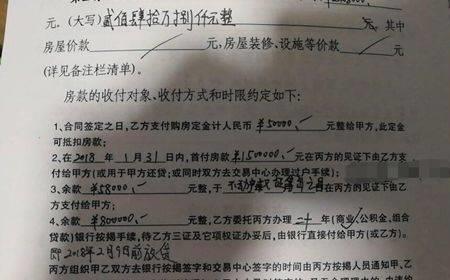 元。(大写)贰佰肆拾万捌仟元整 元。其中
房屋价款 元,房屋装修、设施等价款 元
(详见备注栏清单)。
房款的收付对象、收付方式和时限约定如下:
1、合同签定之日,乙方支付购房定金计人民币 ¥50000,- 元整给甲方,此定金
可抵扣房款;
2、在2018年1月31日内,首付房款¥1500000,-元在丙方的见证下由乙方支
付给甲方(或用于甲方还贷;或同时双方去交易中心办理过户手续);
3、余款 ¥58000,- 元整,于 之日 在丙方的见证下由乙方
支付给甲方;
4、余款 ¥800000,- 元,乙方委托丙方办理 二十 年(商业、公积金、组合
贷款)银行按揭手续,待乙方三证及它项权证办妥后,由银行直接付给甲方(或乙方)。
即2018年2月 日前放贷
丙方组织甲乙双方去银行按揭签字和交易中心签字的时间由丙方按揭人员通知甲、乙